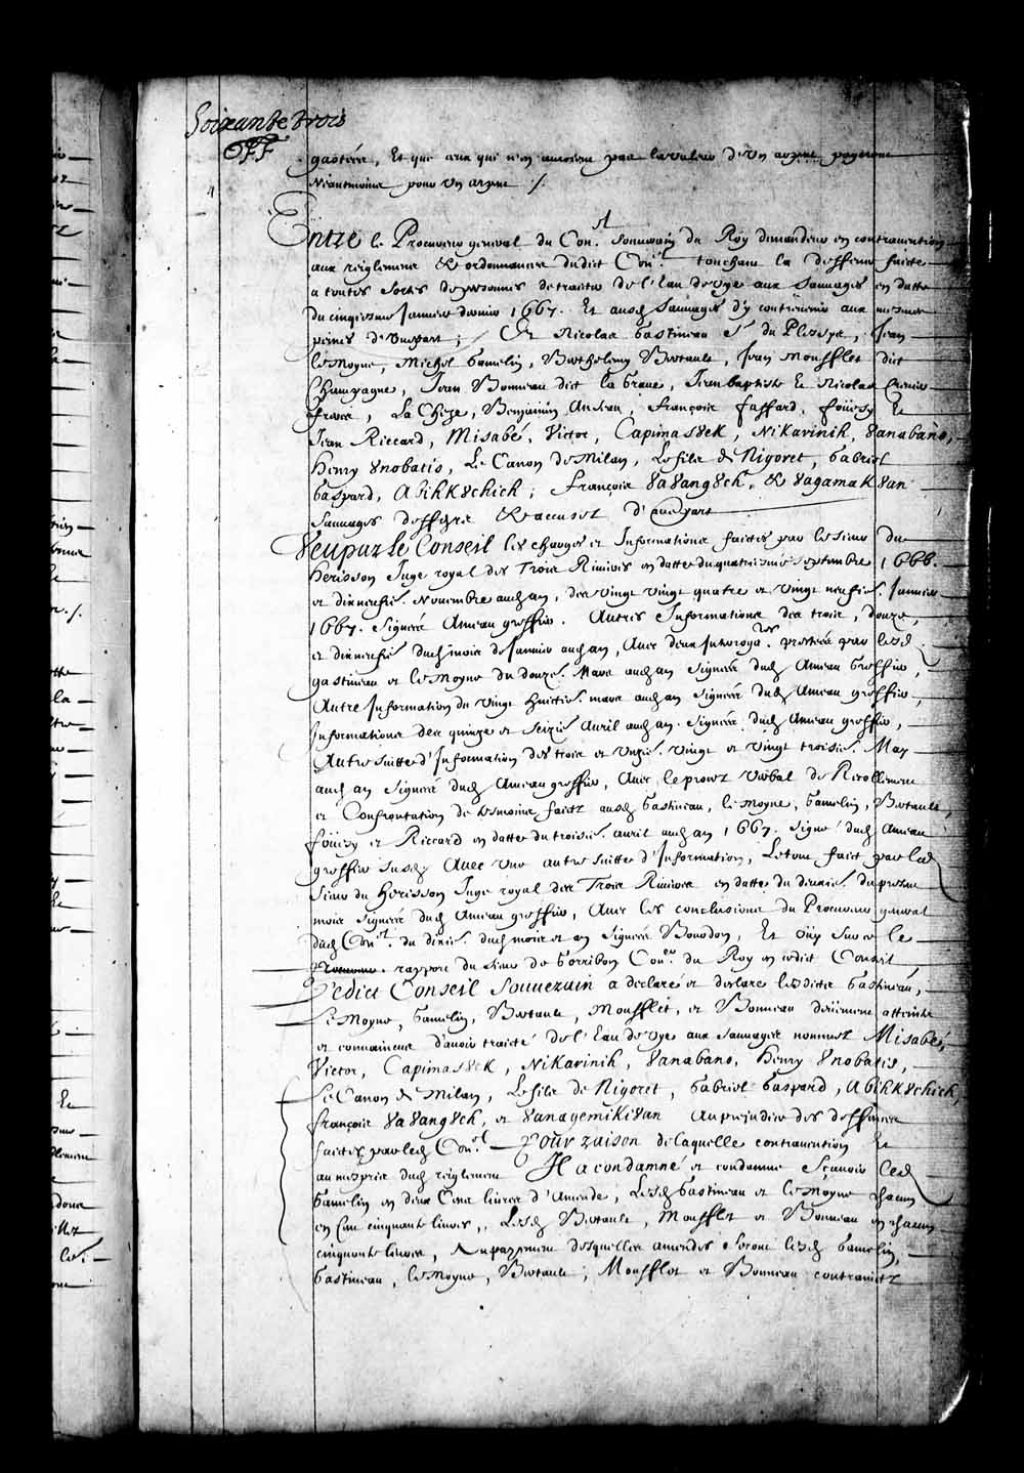 Soixante trois
gastées, Et que ceux qui n'en auront pas la valeur d'Un arpent payeront
Neantmoins pour Un arpent ./.
Entre le Procureur general du Con.el Souuerain du Roy demandeur en contrauention
aux reiglemens & ordonnances dudict Con.el touchant la deffence faicte
a toutes sortes de personnes de traitter de l'Eau de vye aux Sauuages en datte
du cinquiesme Januier dernier 1667. Et ausd Sauuages d'y contreuenir aux mesmes
peines d'Une part; Et Nicolas Gastineau Sr du Plessys, Jean
le Moyne, Michel Gamelin, Barthelemy Bertault, Jean Moufflet dict
Champagne, Jean Bonneau dict la Graue, Jean baptiste & Nicolas Creuier
freres, La Chize, Benjamin Anseau, françois faffard, foüizy &
Jean Riccard, Misabé, Victor, Capimas8ek, Nikarinih, 8anabano,
Henry 8nobatis, Le Canon de Milan, Le fils de Nigoret, Gabriel
Gaspard, Abihk8chich; François 8a8ang8ch, & 8agamak8an
Sauuages deffendeurs & accusez d'autre part
Veu par le Conseil les charges et Informations faittes par le Sieur du
Herisson Juge royal des Trois Riuieres en datte du quatriesme Septembre 1666.
et dixneufie. Nouembre aud an, des vingt vingt quatre et vingt neufie. Januier
1667. Signées Ameau greffier. Autres Informations des trois, douze,
et dixneufie dud mois de Januier aud an, Auec deux Interoga.res prestées par lesd.
gastineau et le Moyne du douze. Mars aud an Signées dud Ameau Greffier,
Autre Information du vingt huictie. mars aud an Signées dud Ameau greffier,
Informations des quinze et seizie. Auril aud an. Signées dud Ameau greffier,
Autre suitte d'Information des trois et Unzie. vingt et vingt troisie. May
aud an Signées dud Ameau greffier, Auec le procez verbal de Recollement
et Confrontation de tesmoins faictz ausd Gastineau, le Moyne, Gamelin, Bertault,
foüizy et Riccard en datte du troisie. auril aud an 1667. Signé dud Ameau
greffier Auec Une autre suitte d'Information, Le tout faict par led
Sieur du Herisson Juge royal des Trois Riuieres en datte du deuxie. du present
mois Signées dud Ameau greffier, Auec les conclusions du Procureur general
dud Con.el du dixie. dud mois et an Signées Bourdon, Et oüy sur ce le
rapport du Sieur de Gorribon Con.er du Roy en cedit Conseil
Ledict Conseil Souuerain a declaré et declare lesdicts Gastineau,
Le Moyne, Gamelin, Bertault, Moufflet, et Bonneau deüement atteints
et conuaincus d'auoir traicté de l'Eau de vye aux Sauuages nommez Misabé,
Victor, Capimas8ek, Nikarinih, 8anabano, Henry 8nobatis,
Le Canon de Milan, Le fils de Nigoret, Gabriel Gaspard, Abihk8chich,
françois 8a8ang8ch, et 8anagemiki8an Au prejudice des deffences
faictes par led Con.el Pour raison de laquelle contrauention &
au mespris dud reiglement Il a condamné et condamne Sçauoir led
Gamelin en deux Cens liures d'Amende, Lesd Gastineau et le Moyne chacun
en Cent cinquante liures, Lesd Bertault, Moufflet et Bonneau en chacun
cinquante liures, Au payement desquelles amendes seront lesd Gamelin,
Gastineau, le Moyne, Bertault, Moufflet et Bonneau contraincts